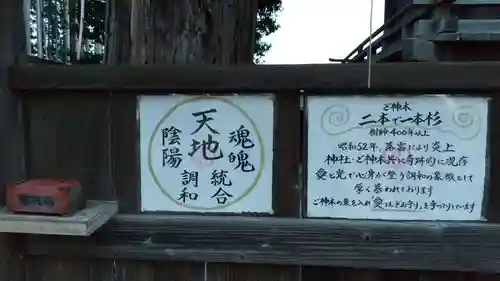 天地
陰陽
調和
魂魄
統合
ご神木
二本で一本杉
樹齢400年以上
昭和52年、落雷で炎上
神社・ご神木共に奇跡的に現存
愛と光で心身が整う調和の象徴として
厚く慕われております
ご神木の葉を入れ「愛っむぎお守り」を手づくりしています